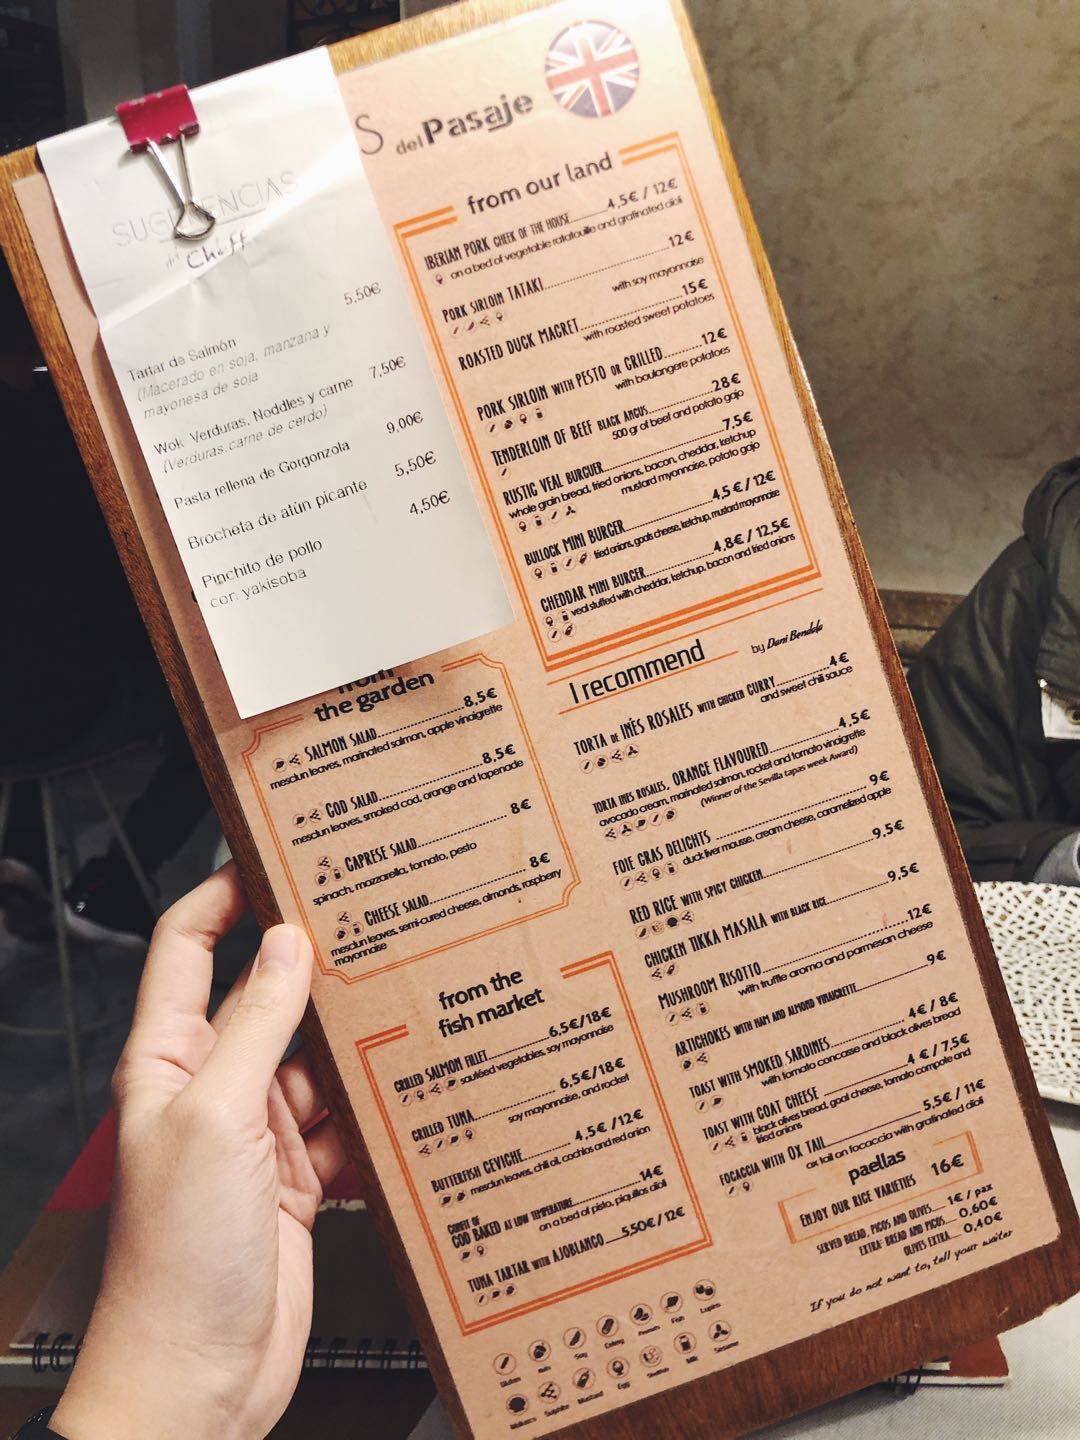 SUGERENCIAS
del Cheff
5,50€
Tartar de Salmón
(Macerado en soja, manzana y
mayonesa de soja
Wok Verduras, Noddles y carne 7,50€
(Verduras,carne de cerdo)
Pasta rellena de Gorgonzola 9,00€
Brocheta de atún picante 5,50€
4,50€
Pinchito de pollo
con yakisoba
S del Pasaje
from our land
IBERIAN PORK CHEEK OF THE HOUSE 4,5€ / 12€
on a bed of vegetable ratatouille and gratinated alioli
PORK SIRLOIN TATAKI 12€
with soy mayonnaise
ROASTED DUCK MAGRET 15€
with roasted sweet potatoes
PORK SIRLOIN WITH PESTO OR GRILLED 12€
with boulangere potatoes
TENDERLOIN OF BEEF BLACK ANGUS 28€
500 gr of beef and potato gajo
RUSTIC VEAL BURGUER 7,5€
whole grain bread, fried onions, bacon, cheddar, ketchup
mustard myonnaise, potato gajo
BULLOCK MINI BURGER 4,5€ / 12€
fried onions, goals cheese, ketchup, mustard mayonnaise
CHEDDAR MINI BURGER 4,8€ / 12,5€
veal stuffed with cheddar, ketchup, bacon and fried onions
from
the garden
SALMON SALAD 8,5€
mesclun leaves, marinated salmon, apple vinaigrette
COD SALAD 8,5€
mesclun leaves, smoked cod, orange and tapenade
CAPRESE SALAD 8€
spinach, mozzarella, tomato, pesto
CHEESE SALAD 8€
mesclun leaves, semi-cured cheese, almonds, raspberry
mayonnaise
from the
fish market
GRILLED SALMON FILLET 6,5€/18€
sautéed vegetables, soy mayonnaise
GRILLED TUNA 6,5€/18€
soy mayonnaise, and rocket
BUTTERFISH CEVICHE 4,5€ /12€
mesclun leaves, chili oil, cochlos and red onion
CONFIT OF
COD BAKED AT LOW TEMPERATURE 14€
on a bed of pisto, piquillos alioli
TUNA TARTAR WITH AJOBLANCO 5,50€ / 12€
I recommend by Dani Bendala
TORTA DE INÉS ROSALES WITH CHICKEN CURRY 4€
and sweet chili sauce
TORTA INES ROSALES, ORANGE FLAVOURED 4,5€
avocado cream, marinated salmon, rocket and tomato vinaigrette
(Winner of the Sevilla tapas week Award)
FOIE GRAS DELIGHTS 9€
duck liver mousse, cream cheese, caramelized apple
RED RICE WITH SPICY CHICKEN 9,5€
CHICKEN TIKKA MASALA WITH BLACK RICE 9,5€
MUSHROOM RISOTTO 12€
with truffle aroma and parmesan cheese
ARTICHOKES WITH HAM AND ALMOND VINAIGRETTE 9€
TOAST WITH SMOKED SARDINES 4€ / 8€
with tomato concasse and black olives bread
TOAST WITH GOAT CHEESE 4 € / 7,5€
black olives bread, goal cheese, tomato compote and
fried onions
FOCACCIA WITH OX TAIL 5,5€ / 11€
ox tail on focaccia with gratinated alioli
paellas
ENJOY OUR RICE VARIETIES 16€
SERVED BREAD, PICOS AND OLIVES 1€ / pax
EXTRA: BREAD AND PICOS 0,60€
OLIVES EXTRA 0,40€
If you do not want to, tell your waiter
Gluten Nuts Soy Celery Peanuts Fish Lupins
Molluscs Sulphite Mustard Egg Shellfish Milk Sesame